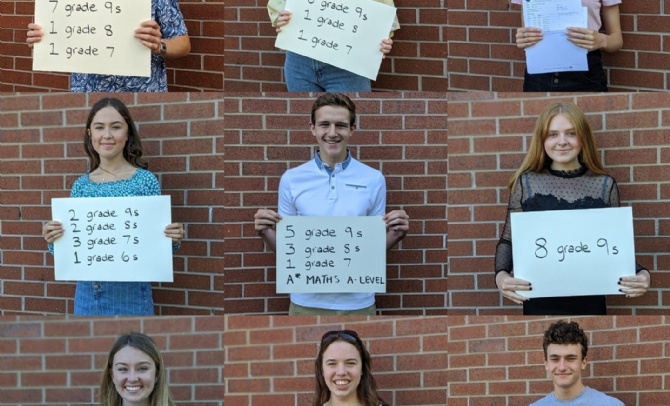 7 grade 9s
1 grade 8
1 grade 7
grade 9s
1 grade 8
1 grade 7
2 grade 9s
2 grade 8s
3 grade 7s
1 grade 6s
5 grade 9s
3 grade 8s
1 grade 7
A* MATHS A-LEVEL
8 grade 9s